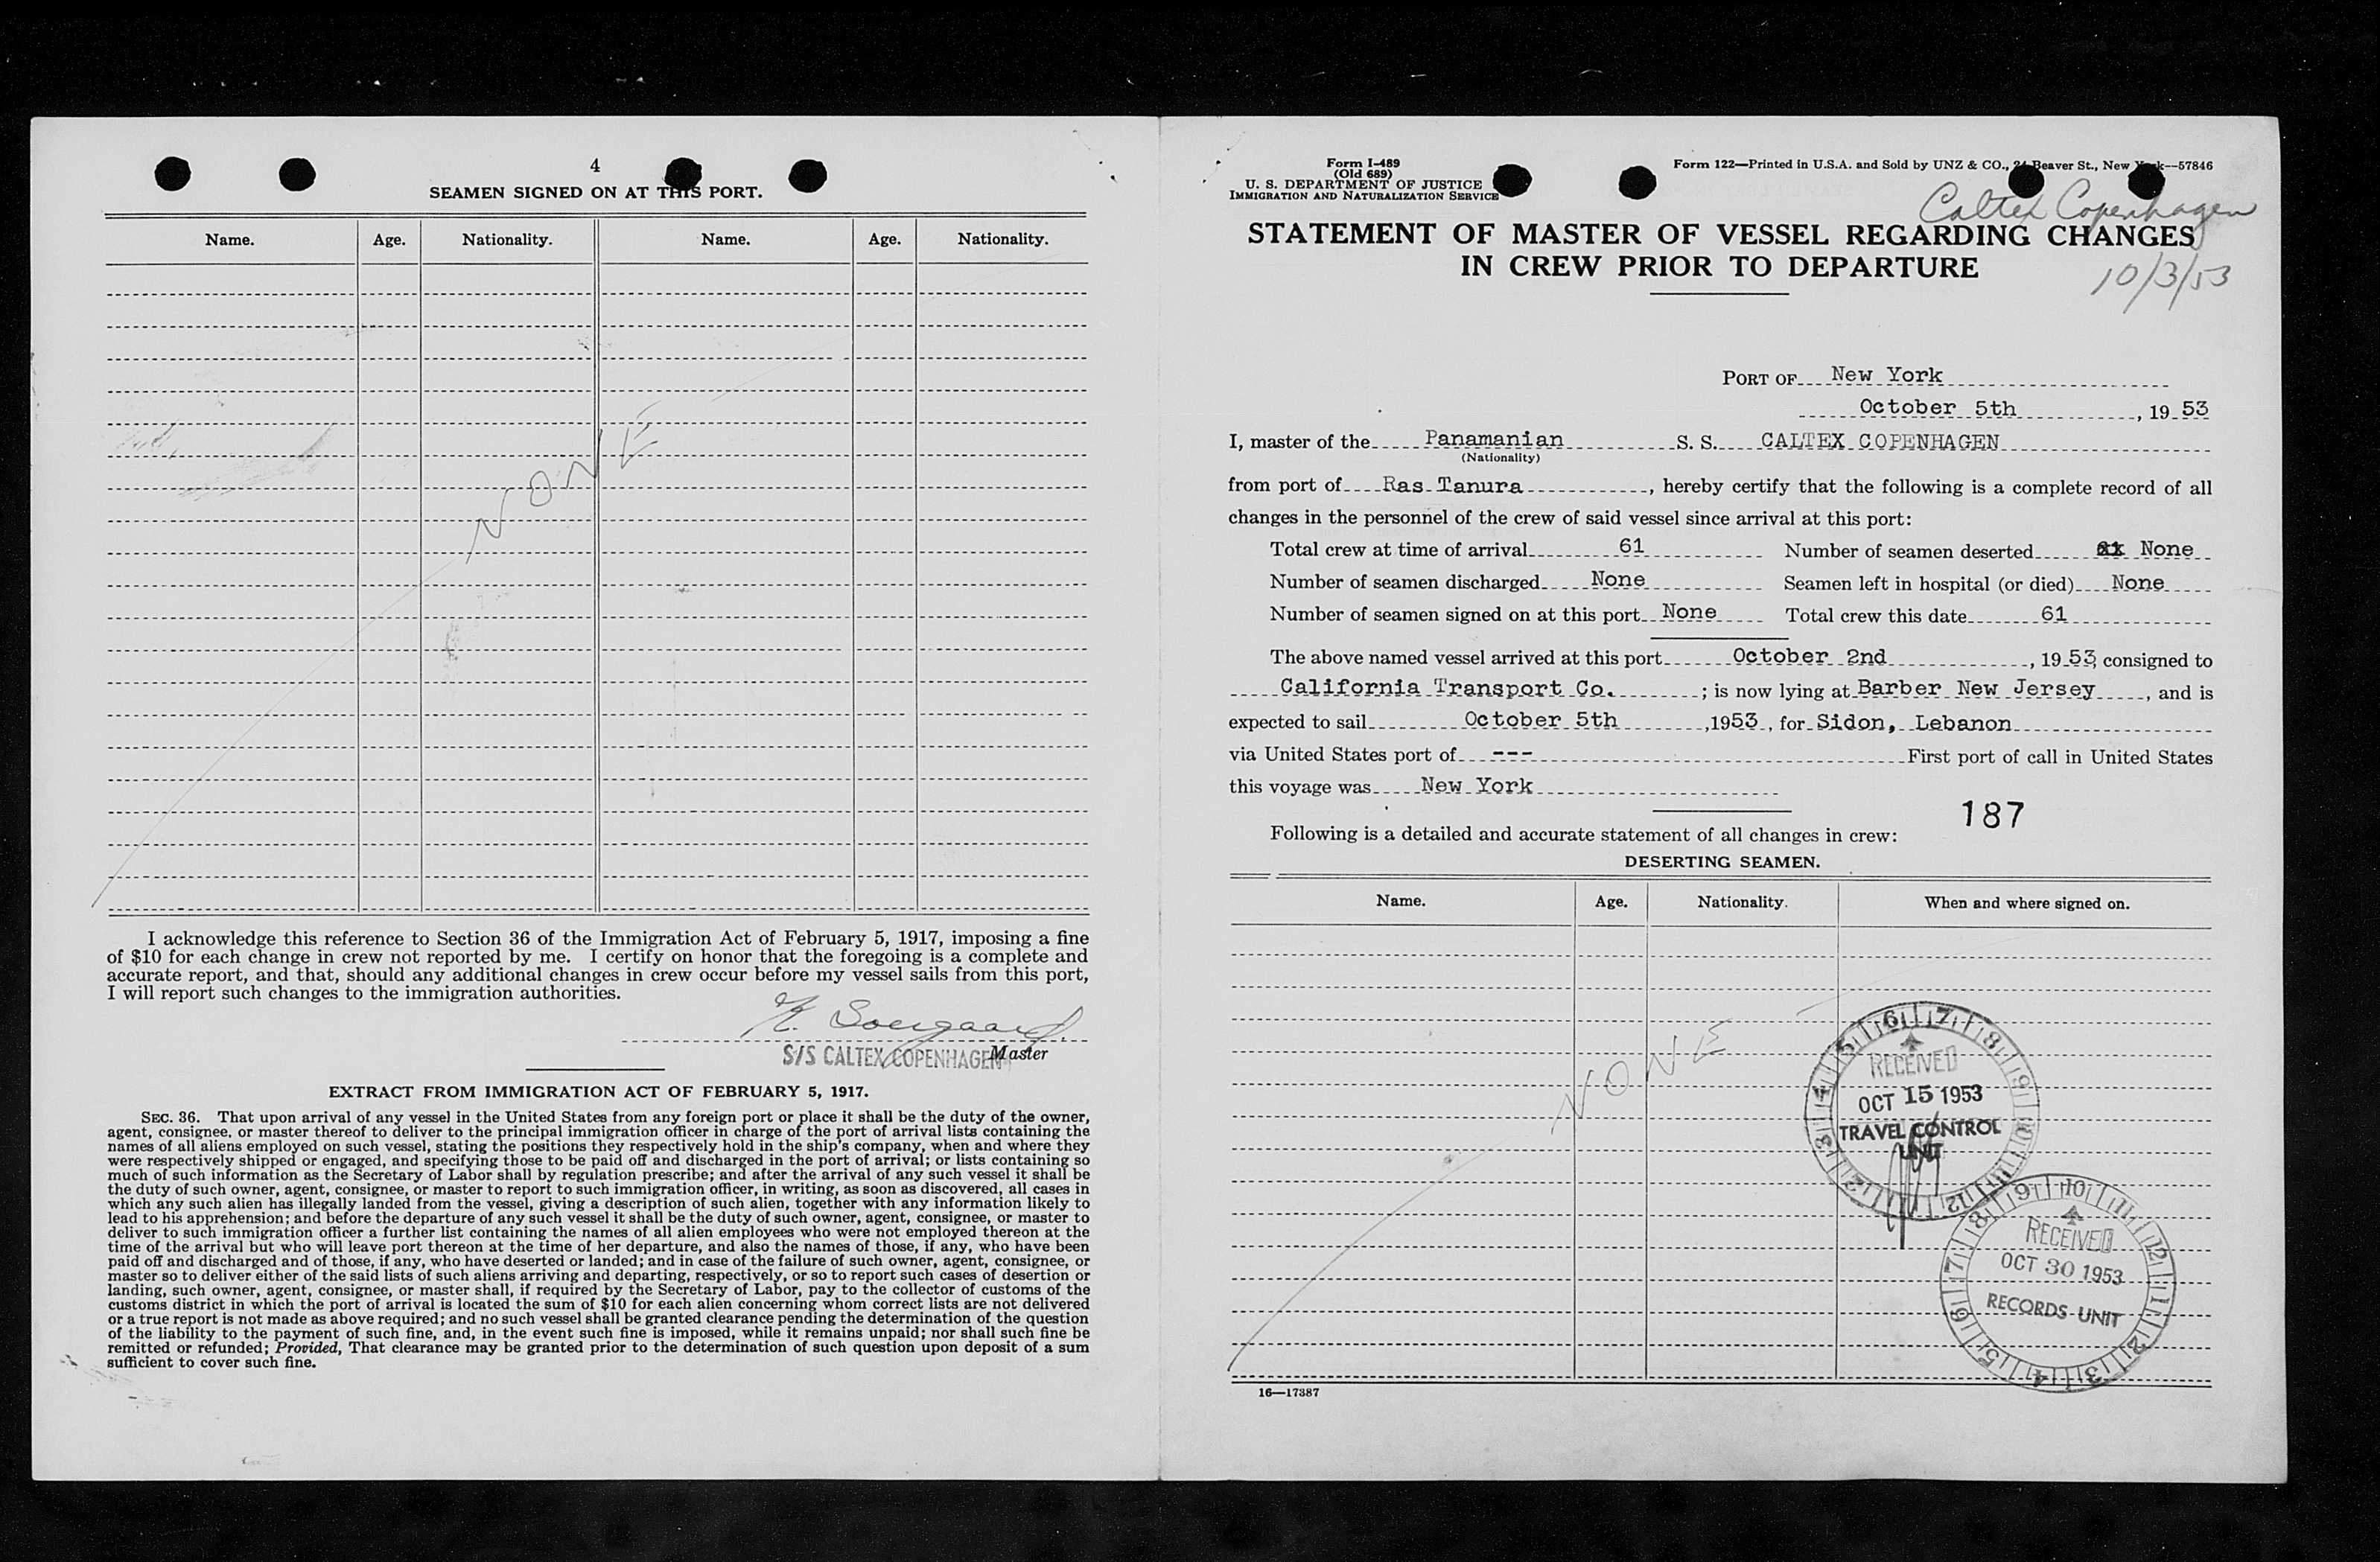 4
SEAMEN SIGNED ON AT THIS PORT.
Name. Age. Nationality. Name. Age. Nationality.
NONE
I acknowledge this reference to Section 36 of the Immigration Act of February 5, 1917, imposing a fine
of $10 for each change in crew not reported by me. I certify on honor that the foregoing is a complete and
accurate report, and that, should any additional changes in crew occur before my vessel sails from this port,
I will report such changes to the immigration authorities.
K. Soergaard.
S/S CALTEX COPENHAGEN Master
EXTRACT FROM IMMIGRATION ACT OF FEBRUARY 5, 1917.
SEC. 36. That upon arrival of any vessel in the United States from any foreign port or place it shall be the duty of the owner,
agent, consignee, or master thereof to deliver to the principal immigration officer in charge of the port of arrival lists containing the
names of all aliens employed on such vessel, stating the positions they respectively hold in the ship's company, when and where they
were respectively shipped or engaged, and specifying those to be paid off and discharged in the port of arrival; or lists containing so
much of such information as the Secretary of Labor shall by regulation prescribe; and after the arrival of any such vessel it shall be
the duty of such owner, agent, consignee, or master to report to such immigration officer, in writing, as soon as discovered, all cases in
which any such alien has illegally landed from the vessel, giving a description of such alien, together with any information likely to
lead to his apprehension; and before the departure of any such vessel it shall be the duty of such owner, agent, consignee, or master to
deliver to such immigration officer a further list containing the names of all alien employees who were not employed thereon at the
time of the arrival but who will leave port thereon at the time of her departure, and also the names of those, if any, who have been
paid off and discharged and of those, if any, who have deserted or landed; and in case of the failure of such owner, agent, consignee, or
master so to deliver either of the said lists of such aliens arriving and departing, respectively, or so to report such cases of desertion or
landing, such owner, agent, consignee, or master shall, if required by the Secretary of Labor, pay to the collector of customs of the
customs district in which the port of arrival is located the sum of $10 for each alien concerning whom correct lists are not delivered
or a true report is not made as above required; and no such vessel shall be granted clearance pending the determination of the question
of the liability to the payment of such fine, and, in the event such fine is imposed, while it remains unpaid; nor shall such fine be
remitted or refunded; Provided, That clearance may be granted prior to the determination of such question upon deposit of a sum
sufficient to cover such fine.
Form I-489
(Old 689)
U. S. DEPARTMENT OF JUSTICE
IMMIGRATION AND NATURALIZATION SERVICE
Form 122—Printed in U.S.A. and Sold by UNZ & CO., 24 Beaver St., New York—57846
Caltex Copenhagen
STATEMENT OF MASTER OF VESSEL REGARDING CHANGES
IN CREW PRIOR TO DEPARTURE
10/3/53
PORT OF New York
October 5th, 19 53
I, master of the Panamanian S. S. CALTEX COPENHAGEN
(Nationality)
from port of Ras Tanura, hereby certify that the following is a complete record of all
changes in the personnel of the crew of said vessel since arrival at this port:
Total crew at time of arrival 61 Number of seamen deserted None
Number of seamen discharged None Seamen left in hospital (or died) None
Number of seamen signed on at this port None Total crew this date 61
The above named vessel arrived at this port October 2nd, 19 53, consigned to
California Transport Co. ; is now lying at Barber New Jersey, and is
expected to sail October 5th ,1953, for Sidon, Lebanon
via United States port of --- First port of call in United States
this voyage was New York
187
Following is a detailed and accurate statement of all changes in crew:
DESERTING SEAMEN.
Name. Age. Nationality. When and where signed on.
NONE
RECEIVED
OCT 15 1953
TRAVEL CONTROL
UNIT
1 2 3 4 5 6 7 8 9 10 11 12
RECEIVED
OCT 30 1953
RECORDS UNIT
1 2 3 4 5 6 7 8 9 10 11 12
16—17387